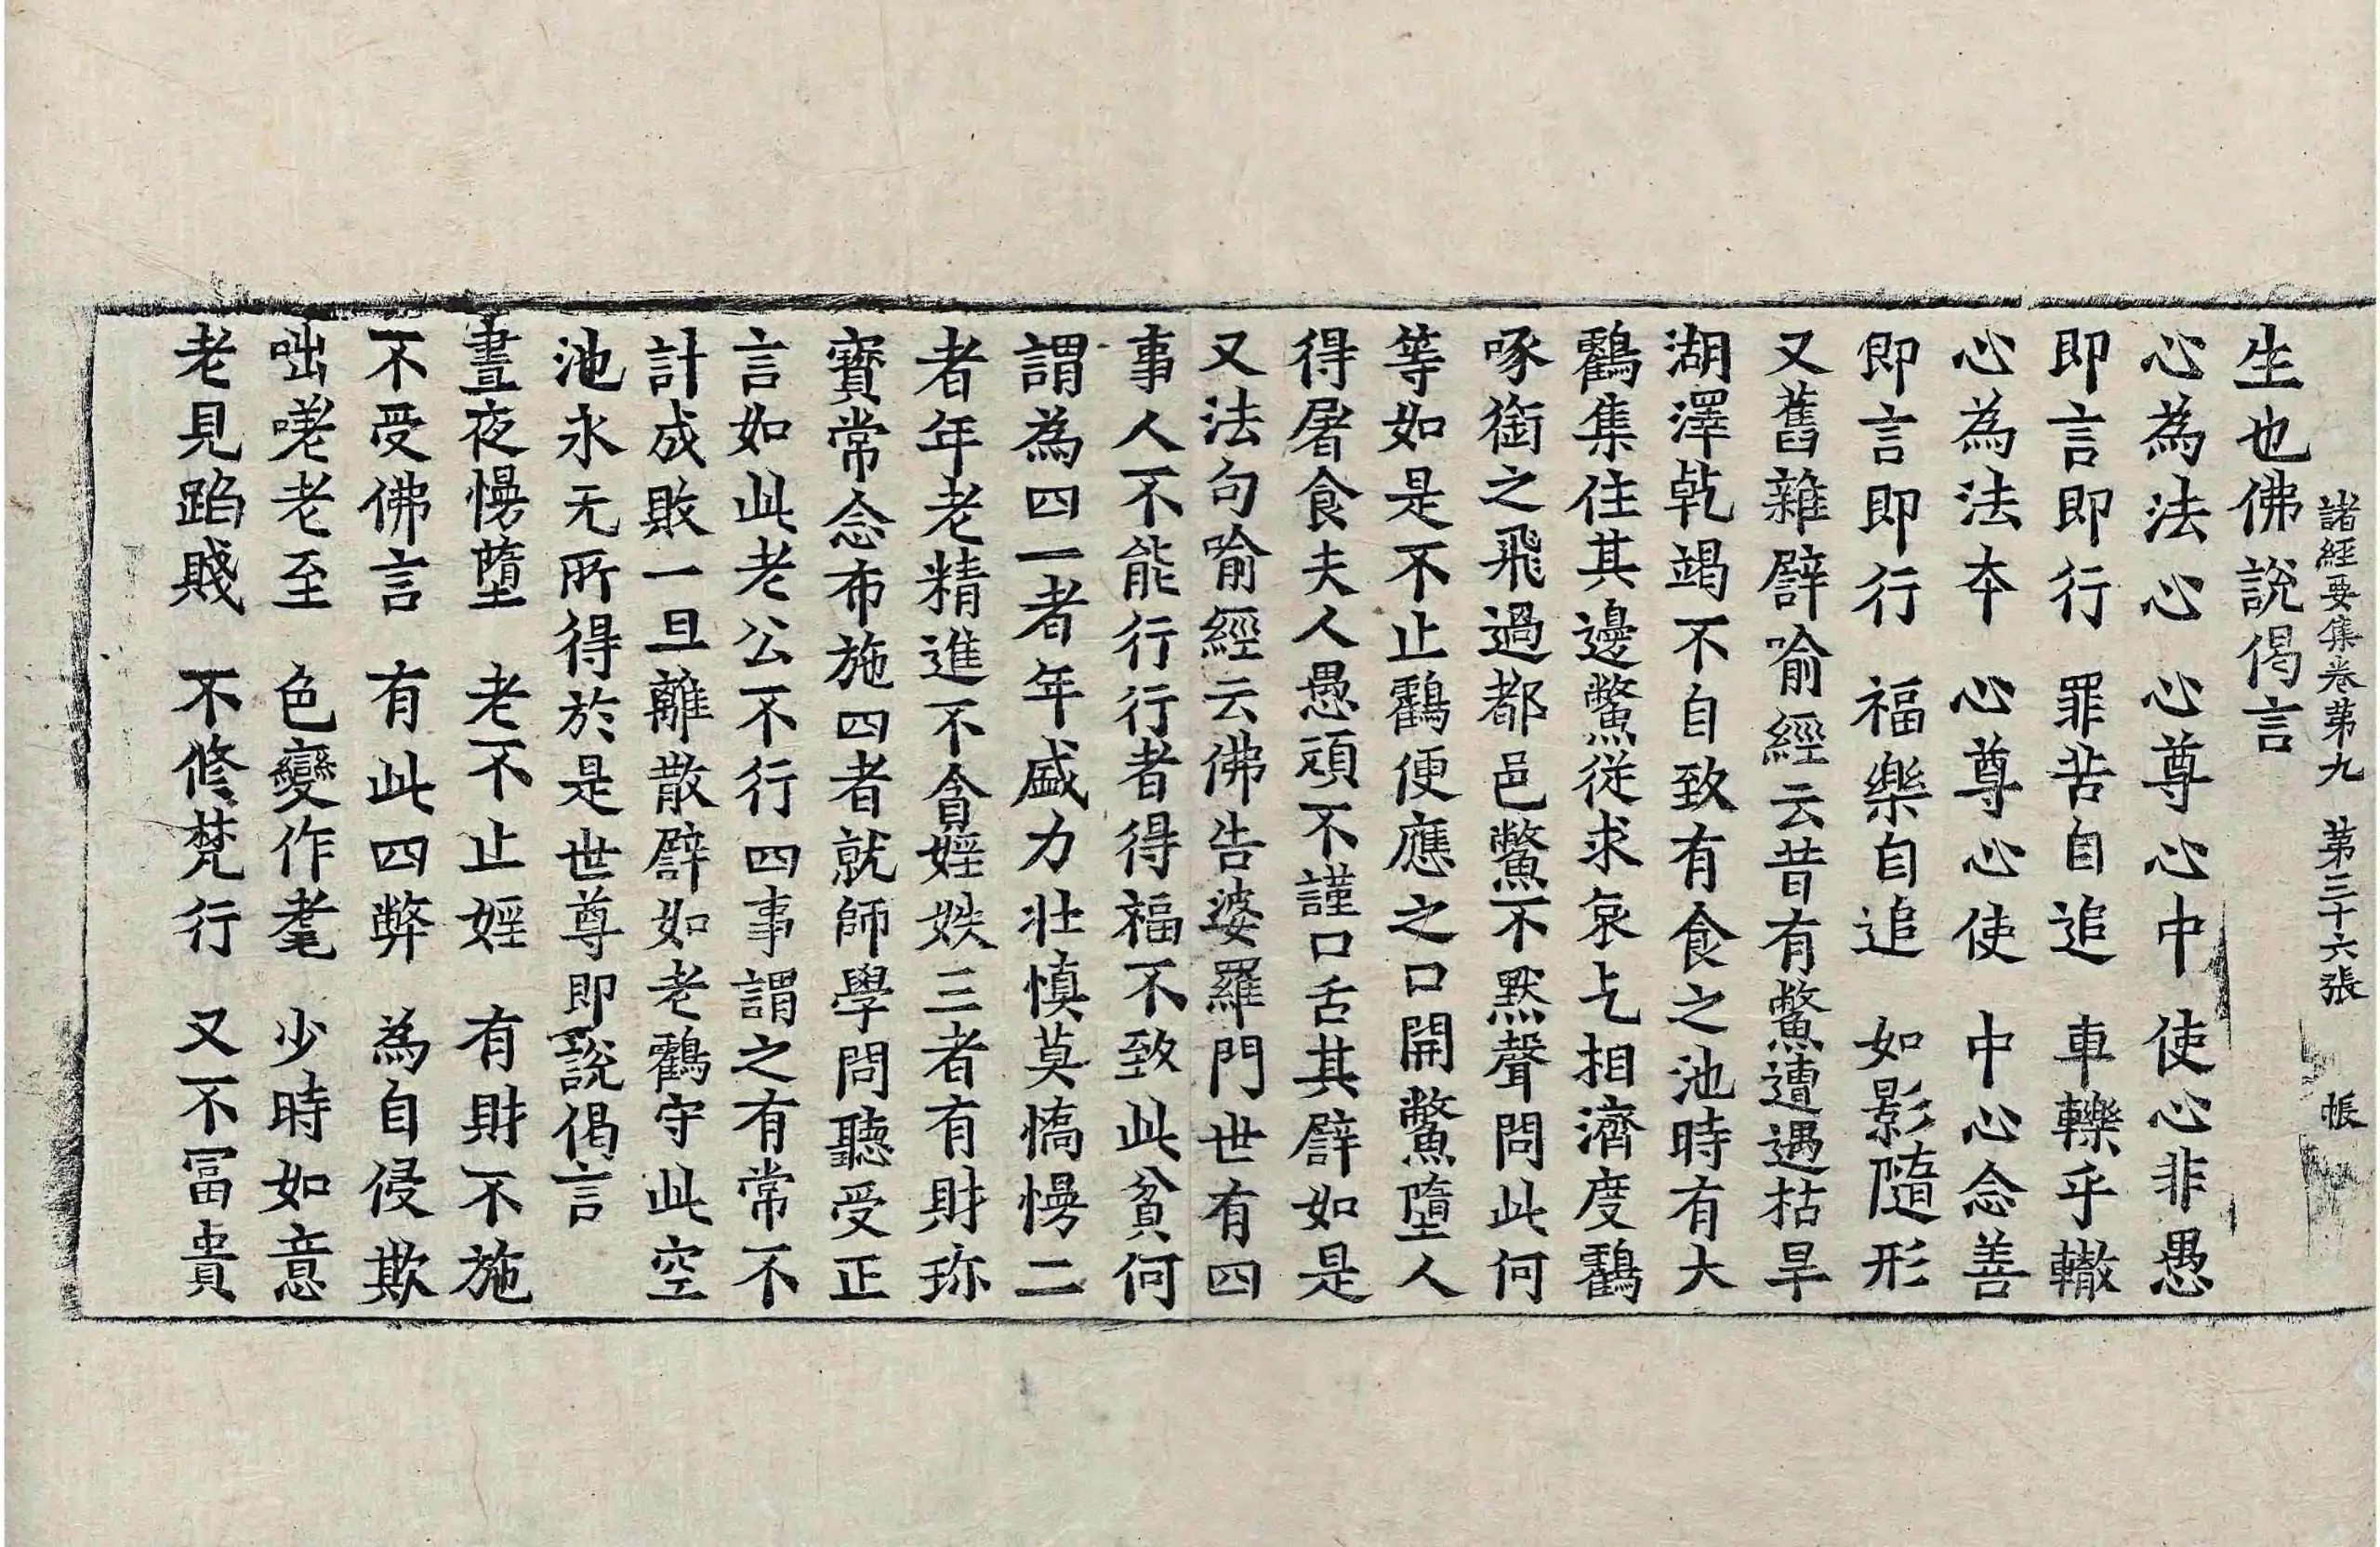 生也佛說偈言
諸經要集卷第九　第三十六張　帳
心為法心　心尊心中　使心非愚
即言即行　罪苦自追　車轢乎轍
心為法本　心尊心使　中心念善
即言即行　福樂自追　如影隨形
又舊雜譬喻經云昔有鱉遭遇枯旱
湖澤乹竭不自致有食之池時有大
鸖集住其邊鱉從求哀乞相濟度鸖
啄銜之飛過都邑鱉不默聲問此何
等如是不止鸖便應之口開鱉墮人
得屠食夫人愚頑不謹口舌其譬如是
又法句喻經云佛告婆羅門世有四
事人不能行行者得福不致此貧何
謂為四一者年盛力壯慎莫憍慢二
者年老精進不貪婬妷三者有財珎
寶常念布施四者就師學問聽受正
言如此老公不行四事謂之有常不
計成敗一旦離散譬如老鸖守此空
池永无所得於是世尊即說偈言
晝夜慢墮　老不止婬　有財不施
不受佛言　有此四弊　為自侵欺
咄嗟老至　色變作耄　少時如意
老見蹈賤　不修梵行　又不冨貴